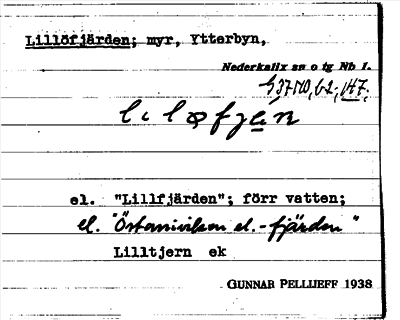 Lillöfjärden; myr, Ytterbyn,
Nederkalix sn o tg Nb 1.
el. "Lillfjärden"; förr vatten;
el. "Östanviksen el. -fjärden"
Lilltjern ek
GUNNAR PELLIJEFF 1938